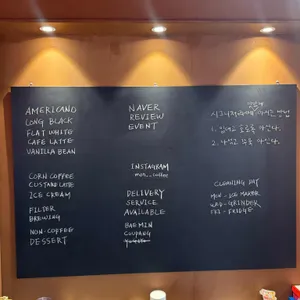 AMERICANO
LONG BLACK
FLAT WHITE
CAFE LATTE
VANILLA BEAN
CORN COFFEE
CUSTARD LATTE
ICE CREAM
FILTER
BREWING
NON-COFFEE
DESSERT
NAVER
REVIEW
EVENT
INSTAGRAM
DELIVERY
SERVICE
AVAILABLE
BAEMIN
COUPANG
1.
2.
CLEANING DAY
MON - ICE MAKER
WED - GRINDER
FRI - FRIDGE